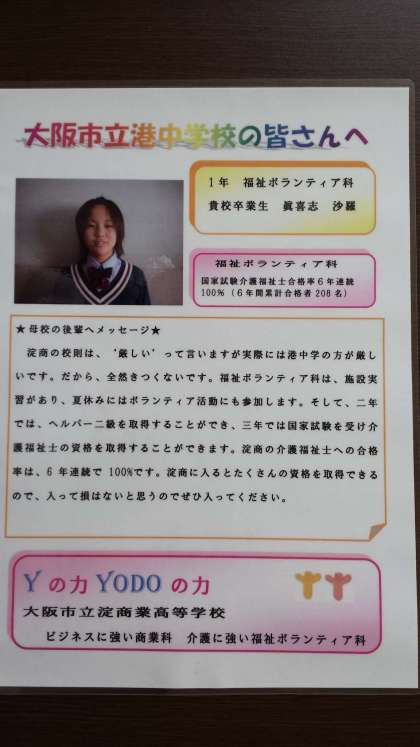 大阪市立港中学校の皆さんへ
1年　福祉ボランティア科
貴校卒業生　眞喜志　沙羅
福祉ボランティア科
国家試験介護福祉士合格率6年連続
100%（6年間累計合格者208名）
★母校の後輩へメッセージ★
淀商の校則は、‘厳しい’って言いますが実際には港中学の方が厳し
いです。だから、全然きつくないです。福祉ボランティア科は、施設実
習があり、夏休みにはボランティア活動にも参加します。そして、二年
では、ヘルパー二級を取得することができ、三年では国家試験を受け介
護福祉士の資格を取得することができます。淀商の介護福祉士への合格
率は、6年連続で100%です。淀商に入るとたくさんの資格を取得できる
ので、入って損はないと思うのでぜひ入ってください。
Yの力 YODOの力
大阪市立淀商業高等学校
ビジネスに強い商業科　介護に強い福祉ボランティア科